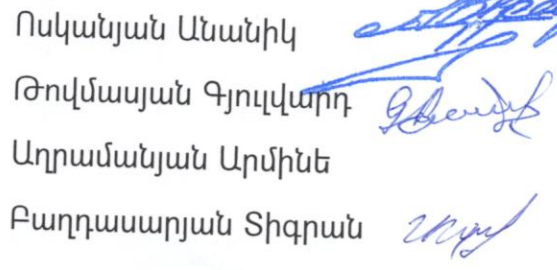 Ոսկանյան Անանիկ
Թովմասյան Գյուլվարդ
Աղրամանյան Արմինե
Բաղդասարյան Տիգրան